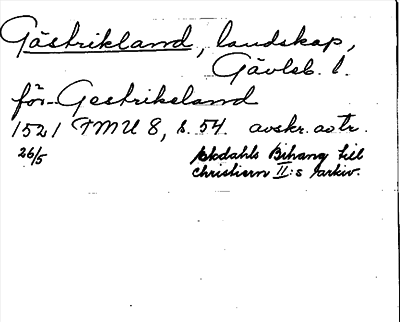 Gästrikland, landskap,
Gävleb. l.
för Gestrikeland
1521 TMU 8, s. 54. avskr. av tr.
26/5 Ekdahls Bihang till
Christiern II:s arkiv.